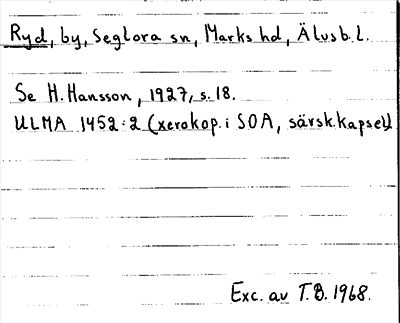 Ryd, by, Seglora sn, Marks hd, Älvsb. l.
Se H. Hansson, 1927, s. 18.
ULMA 1452:2 (xerokop. i SOA, särsk. kapsel)
Exc. av T.B. 1968.